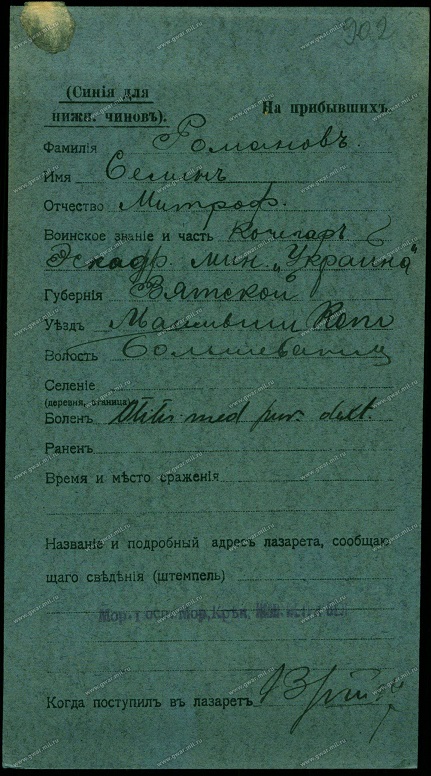 202
(Синія для
нижн. чиновъ).
На прибывшихъ.
Фамилія Романовъ.
Имя Семенъ
Отчество Митроф.
Воинское знаніе и часть Кочегаръ
Эскадр. мин. „Украйна"
Губернія Вятской
Уѣздъ
Волость
Селеніе
(деревня, станица)
Боленъ Otitis med pur. dext.
Раненъ
Время и мѣсто сраженія
Названіе и подробный адресъ лазарета, сообщаю
щаго свѣдѣнія (штемпель)
Мор. Госп. Мор. Крѣп.
Когда поступилъ въ лазаретъ 13
www.gwar.mil.ru